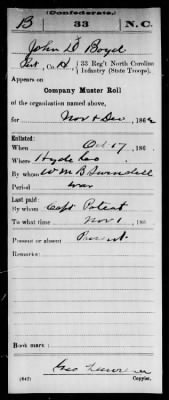 (Confederate.)
B 33 N.C.
John D Boyd
Pvt, Co. H, 33 Reg't North Carolina
Infantry (State Troops).
Appears on
Company Muster Roll
of the organization named above,
for Nov & Dec, 1862
Enlisted:
When Oct 17, 186
Where Hyde Co
By whom W M B Swindell
Period war
Last paid:
By whom Capt Poteat
To what time Nov 1, 186
Present or absent Present
Remarks:
Book mark:
Geo
(642) Copyist.